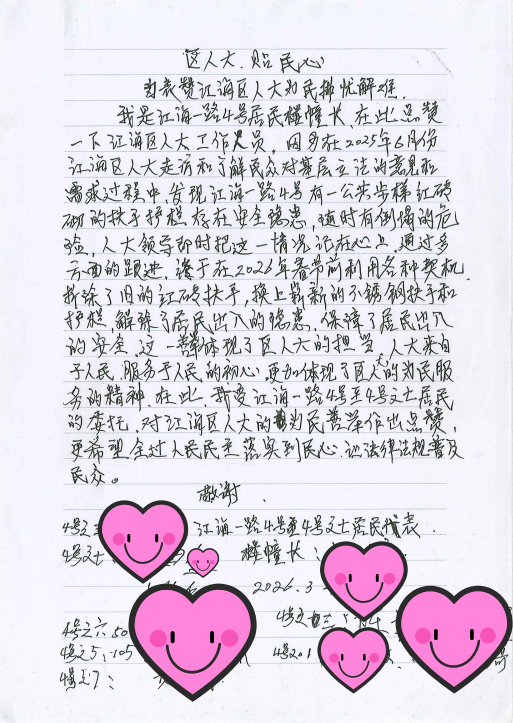 区人大.贴民心
为表赞江海区人大为民排忧解难.
我是江海一路4号居民楼幢长.在此点赞
一下江海区人大工作人员,因多在2025年6月份
江海区人大走访和了解民众对基层立法的意见和
需求过程中,发现江海一路4号有一公共步梯红砖
砌的扶手护栏存在安全隐患,随时有倒塌的危
险,人大领导即时把这一情况记在心上,通过多
方面的跟进,终于在2026年春节前利用各种契机.
拆除了旧的红砖扶手,换上崭新的不锈钢扶手和
护栏,解除了居民出入的隐患,保障了居民出入
的安全.这一举体现了区人大的担当,人大来自
于人民,服务于人民的初心.更加体现了区人大为民服
务的精神.在此,我受江海一路4号至4号之十居民
的委托,对江海区人大的为民善举作出点赞,
更希望全过人民民主落实到民心.让法律法规普及
民众。
敬谢.
4号之 江海一路4号至4号之十居民代表.
4号之 楼幢长:
2026.3
4号之六:50 4号之
4号之5:105 4号201
4号之7: